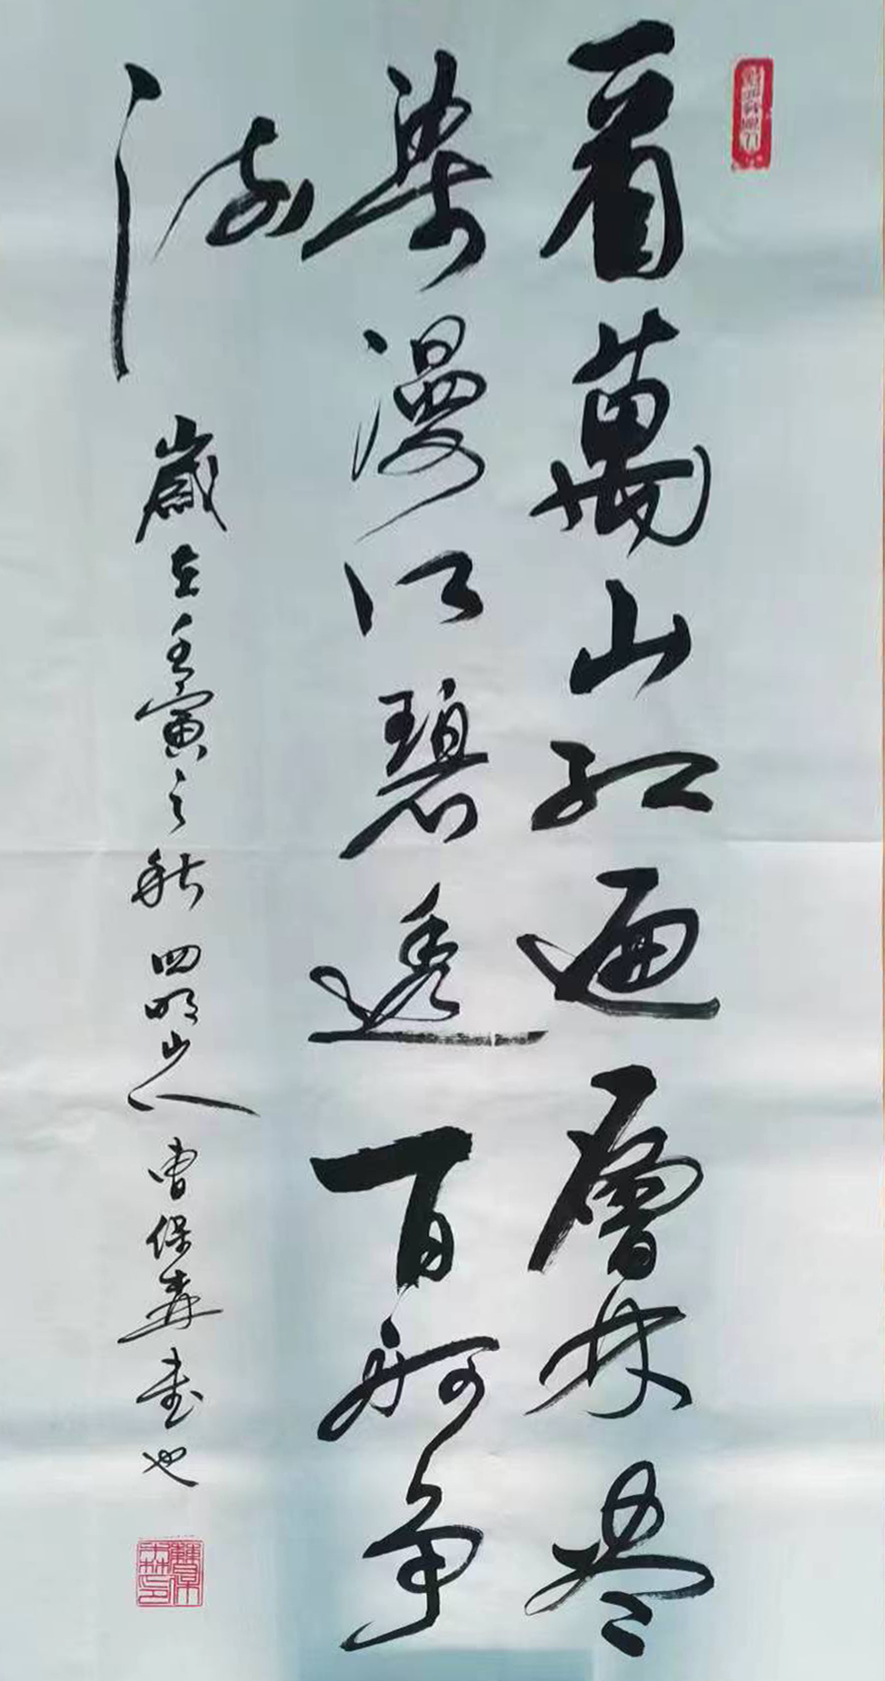 看萬山红遍層林尽
染漫江碧透百舸争
流
歲在壬寅之秋 四明山人 曹保書也